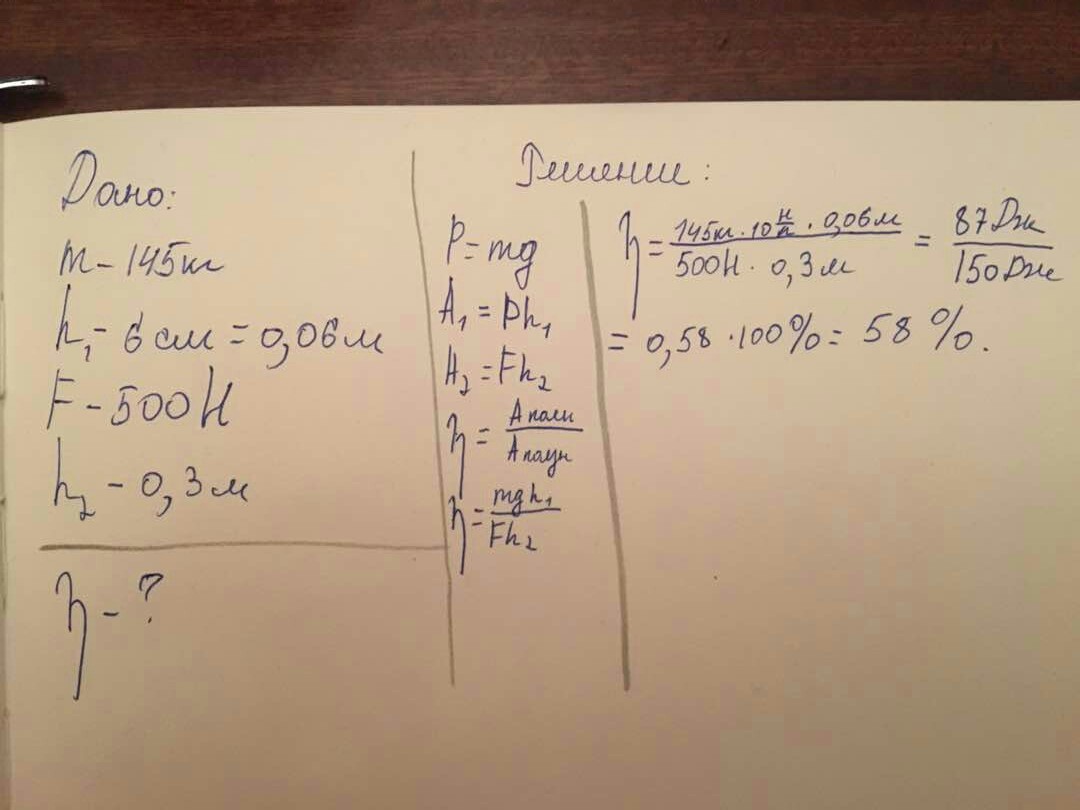 Дано:
m - 145кг
h₁ - 6 см = 0,06м
F - 500Н
h₂ - 0,3м
η - ?
Решение:
P = mg
A₁ = Ph₁
A₂ = Fh₂
η = Аполн / Аполуч
η = mgh₁ / Fh₂
η = 145кг · 10 Н/кг · 0,06м / 500Н · 0,3м = 87Дж / 150Дж
= 0,58 · 100% = 58%.